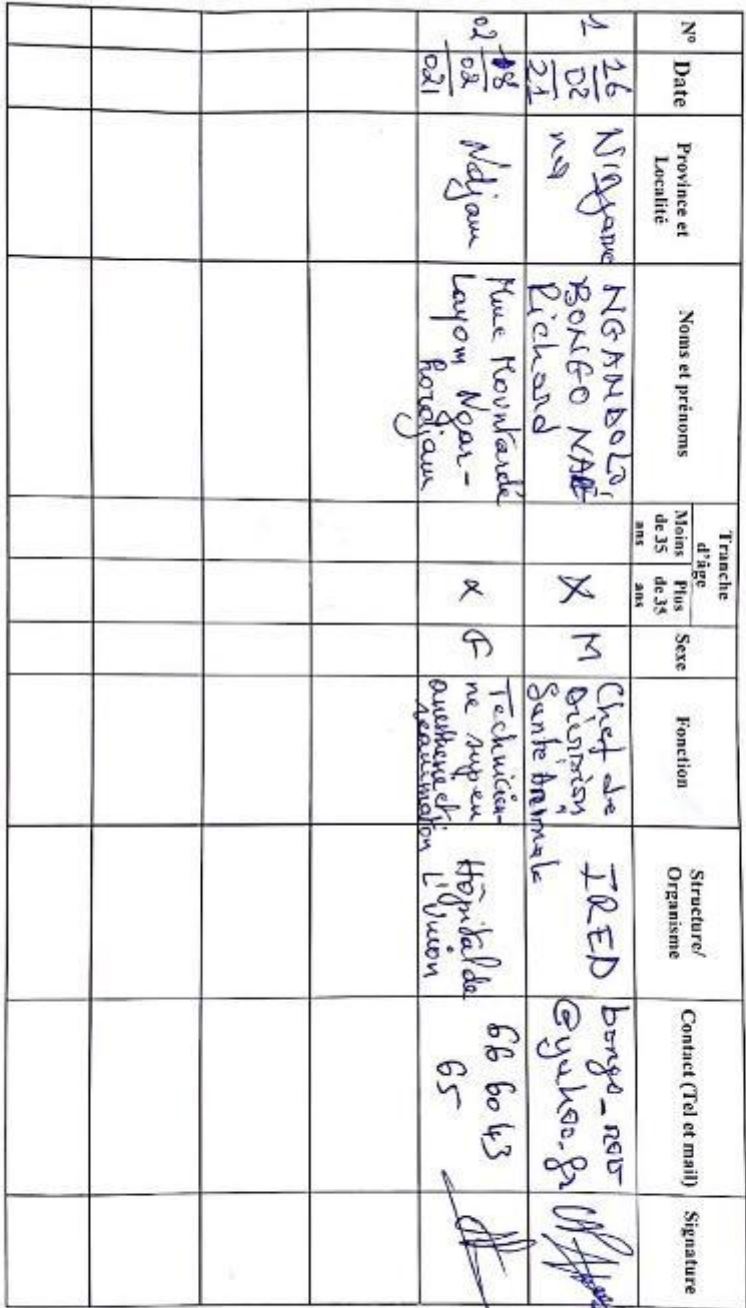 N°
Date
Province et
Localité
Noms et prénoms
Tranche
d'âge
Moins
de 35
ans
Plus
de 35
ans
Sexe
Fonction
Structure/
Organisme
Contact (Tel et mail)
Signature
1
16
02
21
na
NGANDOLO,
BONGO NARÉ
Richard
X
M
Chef de
Division
Santé Animale
IRED
@yahoo.fr
02
18
02
021
Ndjam
Mme
Layom Ngar-
x
F
Technicien-
ne super
Hôpital de
L'Union
66 60 43
65